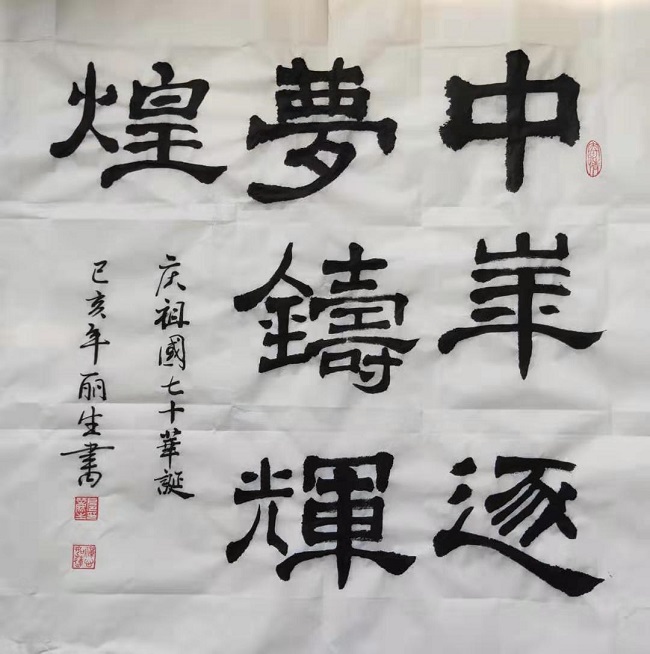 中華逐
夢鑄輝
煌
庆祖國七十華誕
己亥年丽生書